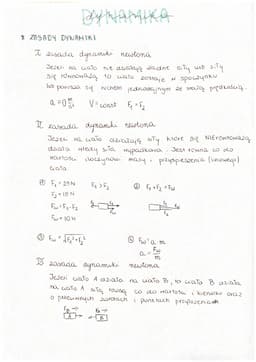 DYNAMIKA
3 ZASADY DYNAMIKI
I zasada dynamiki newtona
Jeżeli na ciało nie działają żadne siły lub siły
się równoważą to ciało zostaje w spoczynku
lub porusza się ruchem jednostajnym ze stałą prędkością.
a=0 m/s² V=const F₁=F₂
II zasada dynamiki newtona
Jeżeli na ciało działają siły które się NIErównoważą
działa wtedy siła wypadkowa. Jest równa co do
wartości iloczynowi masy i przyspieszenia (nowego)
ciała.
① F₁=25N F₁>F₂ ② F₁+F₂=Fw
F₂=15N
Fw=F₁-F₂
Fw=10N
③ Fw=√F₁²+F₂² ④ Fw=a·m
a=Fw/m
III zasada dynamiki newtona
Jeżeli ciało A działa na ciało B, to ciało B działa
na ciało A siłą równą co do wartości i kierunku oraz
o przeciwnych zwrotach i punktach przyłożenia
A B